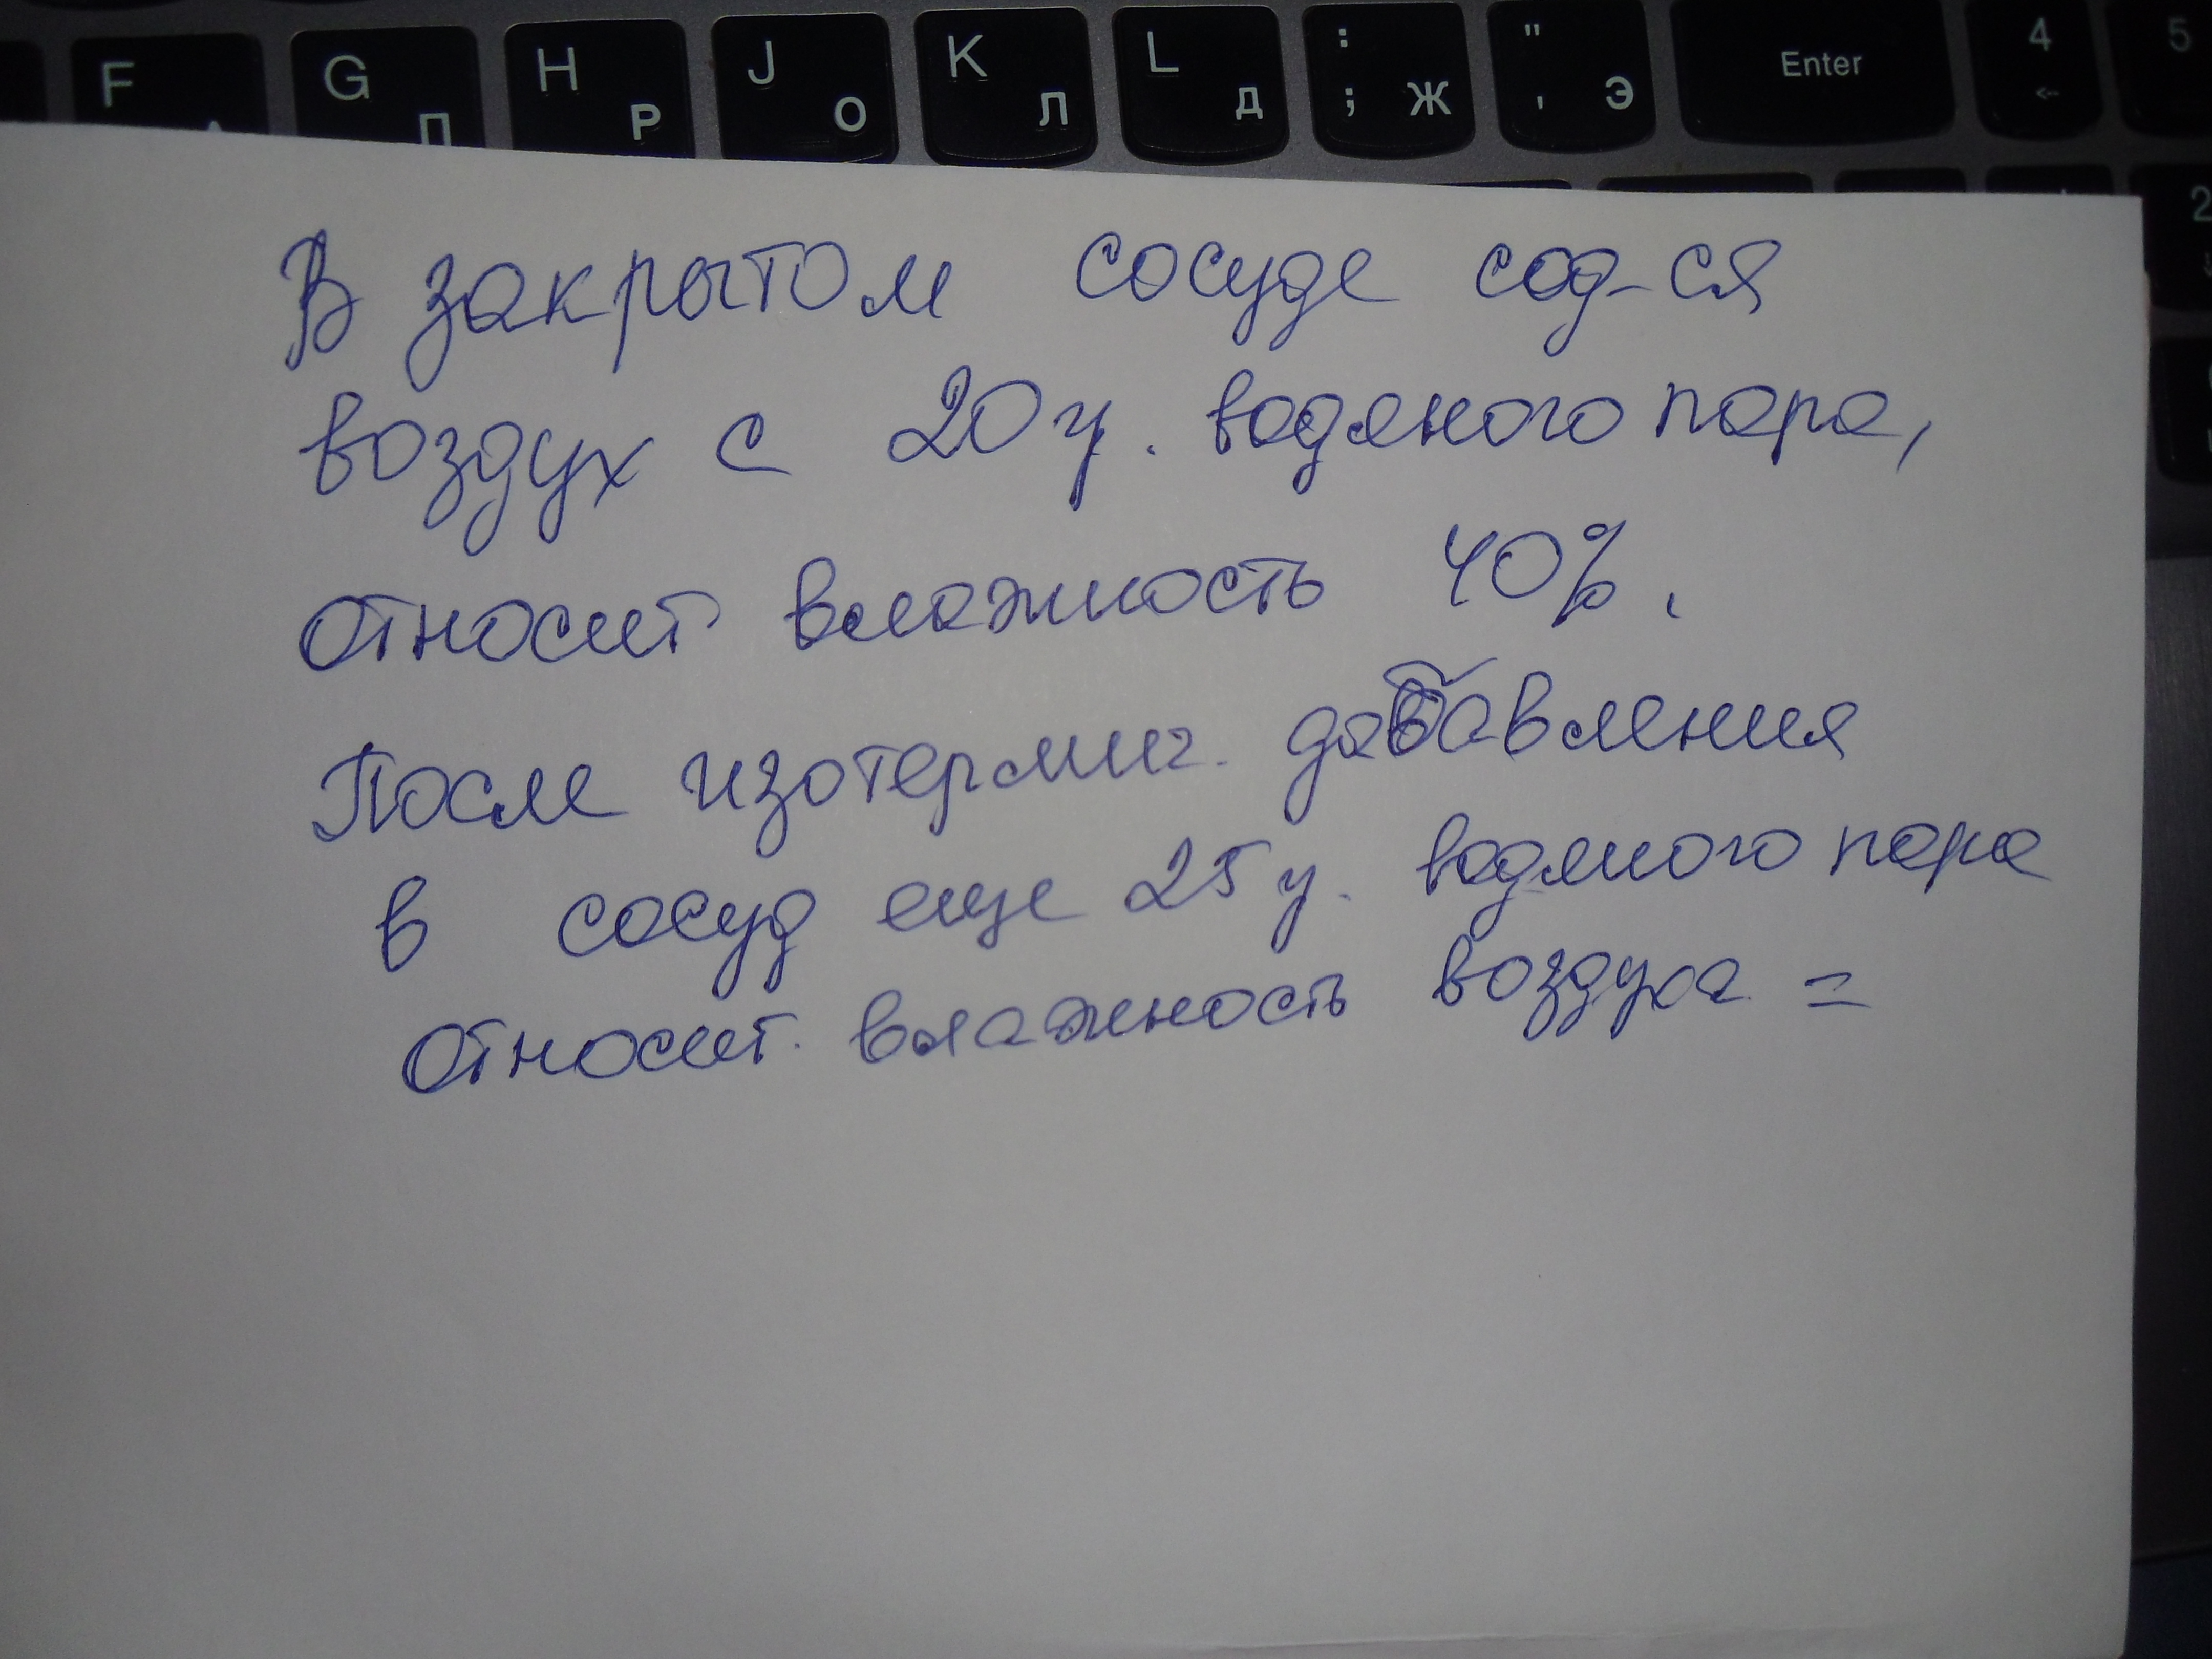 F G П H Р J О K Л L Д : ; Ж " ' Э Enter 4 5
2
В закрытом сосуде сод-ся
воздух с 20 г. водяного пара,
относит влажность 40%.
После изотермич. добавления
в сосуд еще 25 г. водяного пара
относит. влажность воздуха =